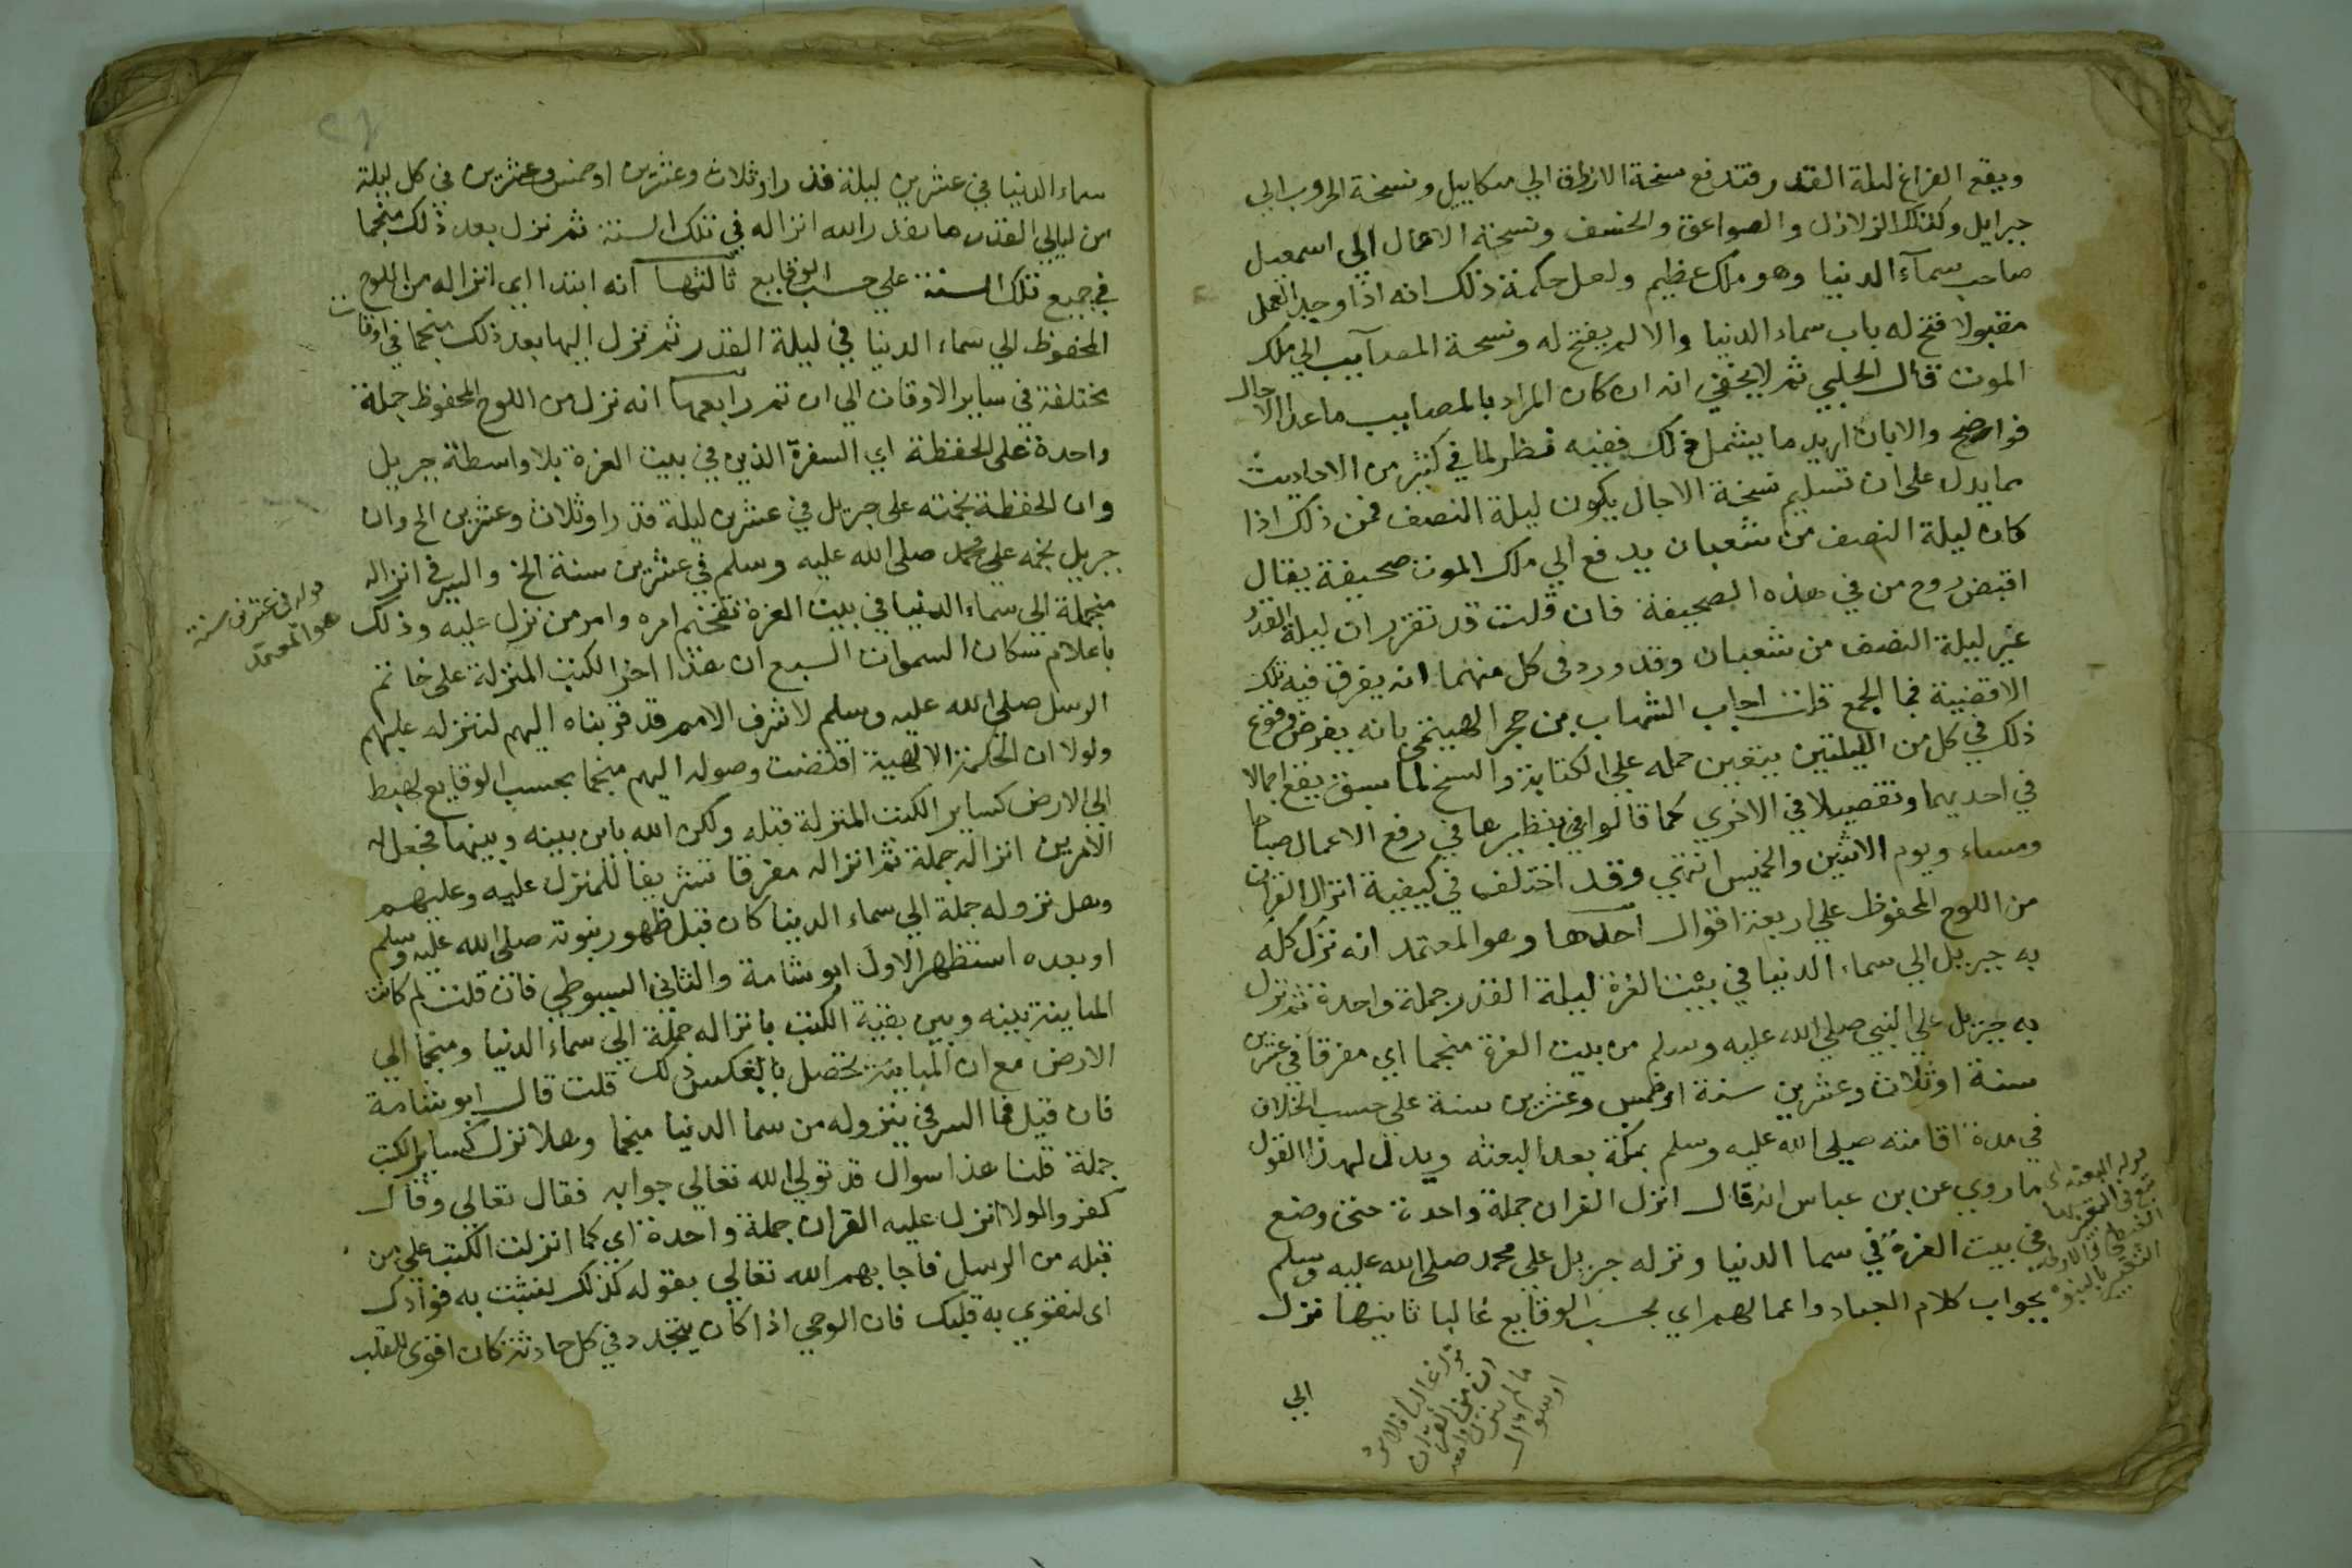 ويقع الفراغ ليلة القدر فتدفع نسخة الارزاق الي ميكاييل ونسخة الحروب الي
جبرايل وكذلك الزلازل والصواعق والخسف ونسخة الاعمال الي اسمعيل
صاحب سمآء الدنيا وهو ملك عظيم ولعل حكمة ذلك انه اذا وجد العمل
مقبولا فتح له باب سماء الدنيا والا لم يفتح له ونسخة المصآيب الي ملك
الموت قال الحلبي ثم لا يخفي انه ان كان المراد بالمصايب ما عدا الاجال
فواضح والا بان اريد ما يشمل ذلك ففيه نظر لما في كثير من الاحاديث
مما يدل على ان تسليم نسخة الاجال يكون ليلة النصف فمن ذلك اذا
كان ليلة النصف من شعبان يدفع الي ملك الموت صحيفة يقال
اقبض روح من في هذه الصحيفة فان قلت قد تقرر ان ليلة القدر
غير ليلة النصف من شعبان وقد ورد في كل منهما انه يفرق فيه تلك
الاقضية فما الجمع قلت اجاب الشهاب بن حجر الهيتمي بانه بفرض وقوع
ذلك في كل من الليلتين يتعين حمله علي الكتابة والنسخ لما سبق يقع اجمالا
في احديهما وتفصيلا في الاخري كما قالوا في نظيرها في رفع الاعمال صباحا
ومساء ويوم الاثنين والخميس انتهي وقد اختلف في كيفية انزال القران
من اللوح المحفوظ علي اربعة اقوال احدها وهو المعتمد انه نزل كله
به جبريل الي سماء الدنيا في بيت العزة ليلة القدر جملة واحدة ثم نزل
به جبريل علي النبي صلي الله عليه وسلم من بيت العزة منجما اي مفرقا في عشرين
سنة او ثلاث وعشرين سنة او خمس وعشرين سنة علي حسب الخلاف
في مدة اقامته صلي الله عليه وسلم بمكة بعد البعثه ويدل لهذا القول
ما روي عن بن عباس انه قال انزل القران جملة واحدة حتى وضع
في بيت العزة في سما الدنيا ونزله جبريل علي محمد صلى الله عليه وسلم
بجواب كلام العباد واعمالهم اي بحسب الوقايع غالبا ثانيها نزل
الي
سماء الدنيا في عشرين ليلة قدر او ثلاث وعشرين او خمس وعشرين في كل ليلة
من ليالي القدر ما يقدر الله انزاله في تلك السنة ثم نزل بعد ذلك منجما
في جميع تلك السنة علي حسب الوقايع ثالثها انه ابتدا اي انزاله من اللوح
المحفوظ الي سماء الدنيا في ليلة القدر ثم نزل اليها بعد ذلك منجما في اوقات
مختلفة في ساير الاوقات الي ان تم رابعها انه نزل من اللوح المحفوظ جملة
واحدة على الحفظة اي السفرة الذين في بيت العزة بلا واسطة جبريل
وان الحفظة نجمته على جبريل في عشرين ليلة قدر او ثلاث وعشرين الخ وان
جبريل نجمه علي محمد صلى الله عليه وسلم في عشرين سنة الخ والسر في انزاله
منجملة الي سماء الدنيا في بيت العزة تفخيم امره وامر من نزل عليه وذلك
باعلام سكان السموات السبع ان هذا اخر الكتب المنزلة على خاتم
الرسل صلى الله عليه وسلم لاشرف الامم قد قربناه اليهم لننزله عليهم
ولولا ان الحكمة الالهية اقتضت وصوله اليهم منجما بحسب الوقايع لهبط
الي الارض كساير الكتب المنزلة قبله ولكن الله باين بينه وبينها فجعل له
الامرين انزاله جملة ثم انزاله مفرقا تشريفا للمنزل عليه وعليهم
وهل نزوله جملة الي سماء الدنيا كان قبل ظهور نبوته صلى الله عليه وسلم
او بعده استظهر الاول ابو شامة والثاني السيوطي فان قلت لم كانت
المباينة بينه وبين بقية الكتب بانزاله جملة الي سماء الدنيا ومنجما الي
الارض مع ان المباينة تحصل بالعكس ذلك قلت قال ابو شامة
فان قيل فما السر في نزوله من سما الدنيا منجما وهلا نزل كساير الكتب
جملة قلنا هذا سوال قد تولي الله تعالي جوابه فقال تعالي وقال
كفروا لولا انزل عليه القران جملة واحدة اي كما انزلت الكتب علي من
قبله من الرسل فاجابهم الله تعالي بقوله كذلك لنثبت به فوادك
اي لنقوي به قلبك فان الوحي اذا كان يتجدد في كل حادثة كان اقوي للقلب
قوله في عشرين سنة
هو المعتمد